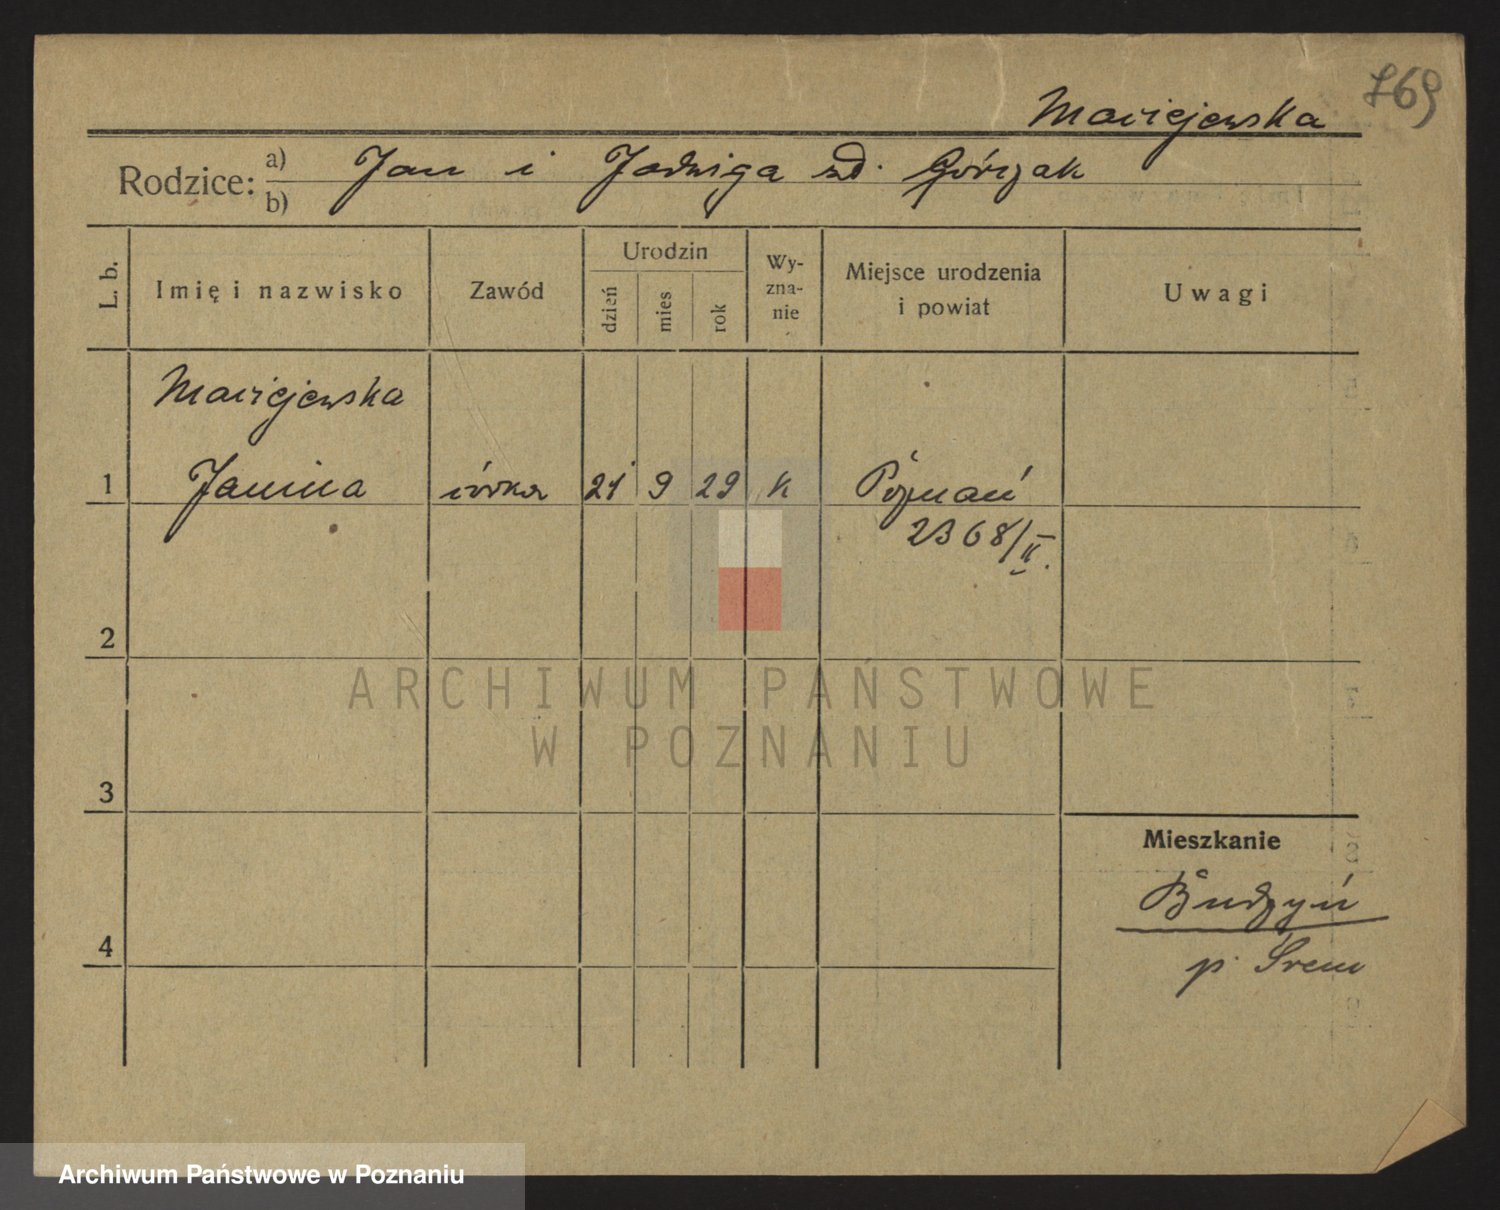 769
Maciejewska
Rodzice: a) Jan i Jadwiga zd. Górczak
b)
L. b. Imię i nazwisko Zawód Urodzin dzień mies rok Wyznanie Miejsce urodzenia i powiat Uwagi
Maciejewska
1 Janina córka 21 9 29 k Poznań
2368/II.
2
3
4
Mieszkanie
Budzyń
p. Śrem
ARCHIWUM PAŃSTWOWE
W POZNANIU
Archiwum Państwowe w Poznaniu